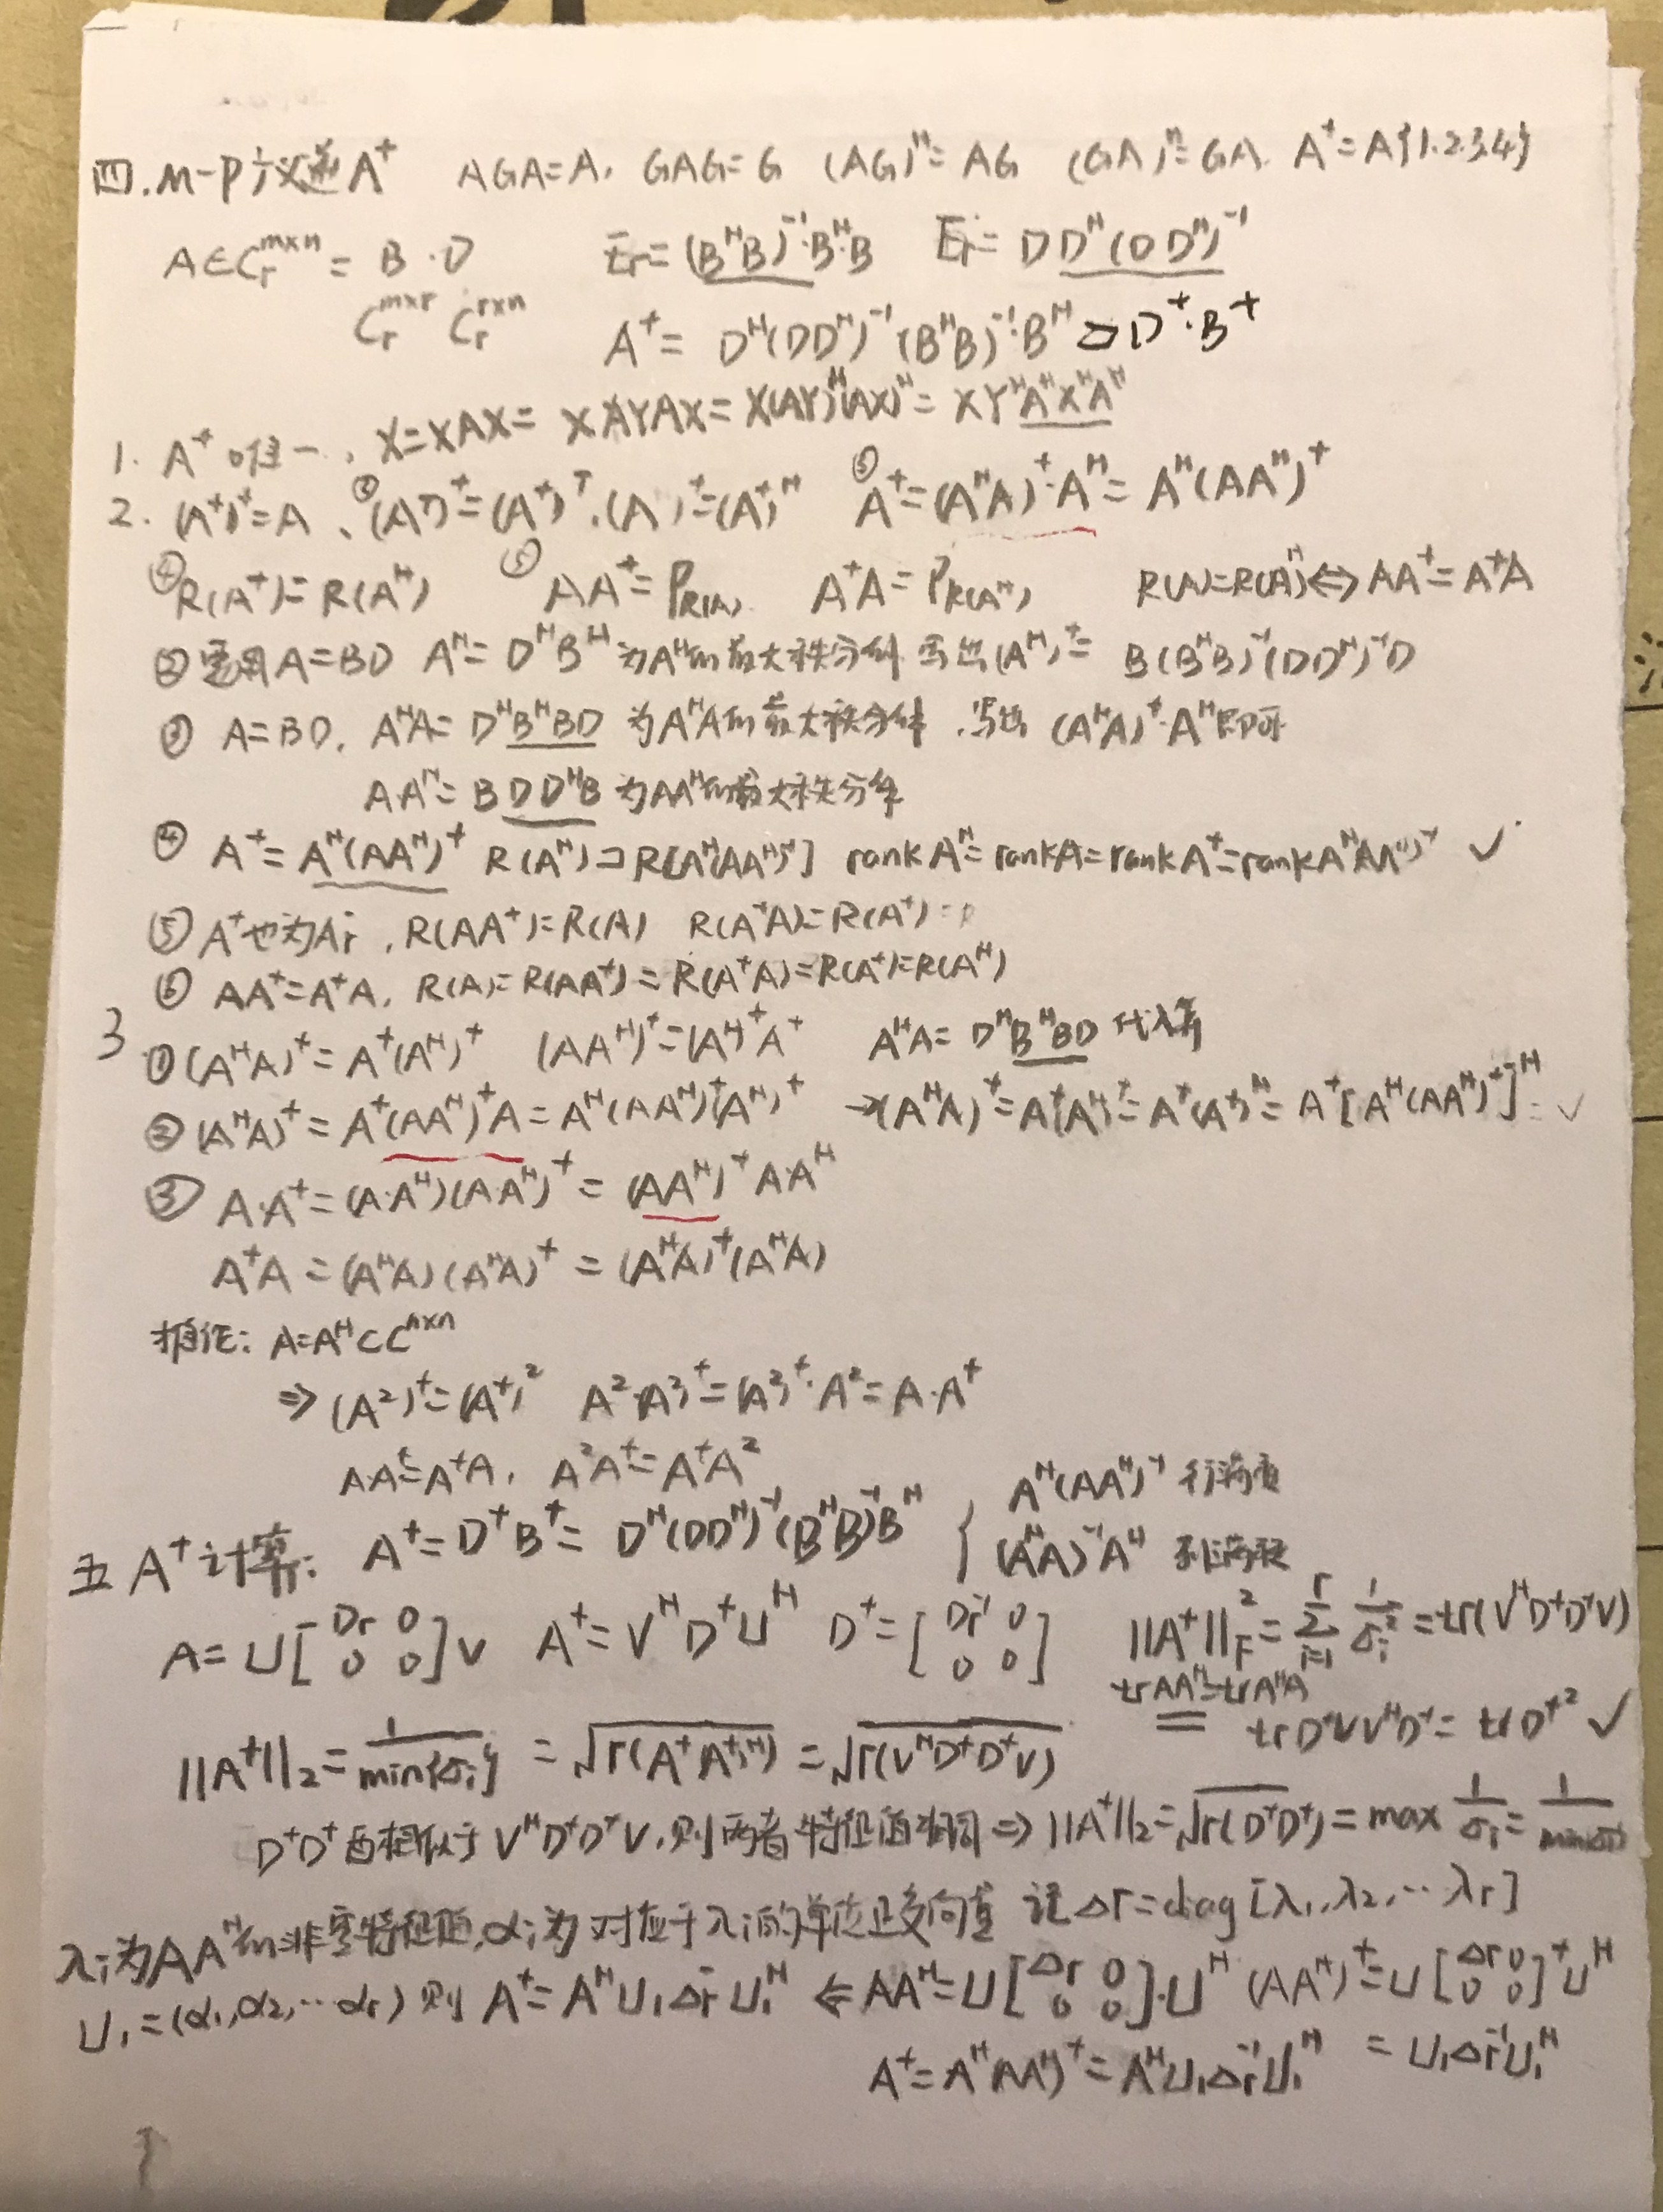 四.M-P广义逆A⁺ AGA=A, GAG=G (AG)ᴴ=AG (GA)ᴴ=GA. A⁺=A{1.2.3.4}
A∈Cᵣᵐˣⁿ = B·D Eᵣ=(BᴴB)⁻¹·Bᴴ·B Eᵣ=DDᴴ(DDᴴ)⁻¹
Cᵣᵐˣʳ Cᵣʳˣⁿ A⁺= Dᴴ(DDᴴ)⁻¹(BᴴB)⁻¹·Bᴴ D⁺·B⁺
1. A⁺唯一, X=XAX= XAYAX=X(AY)ᴴ(AX)ᴴ= XYᴴAᴴXᴴAᴴ
2. (A⁺)⁺=A、②(Aᵀ)⁺=(A⁺)ᵀ.(A)⁺=(A⁺)ᴴ ③A⁺=(AᴴA)⁺·Aᴴ= Aᴴ(AAᴴ)⁺
④R(A⁺)=R(Aᴴ) ⑤AA⁺=P_R(A). A⁺A=P_R(Aᴴ) R(A)=R(Aᴴ)⇔AA⁺=A⁺A
② A=BD Aᴴ=DᴴBᴴ为Aᴴ的最大秩分解 写出(Aᴴ)⁺= B(BᴴB)⁻¹(DDᴴ)⁻¹D
③ A=BD, AᴴA=DᴴBᴴBD 为AᴴA的最大秩分解,写出 (AᴴA)⁺·Aᴴ即可
AAᴴ=BDDᴴB为AAᴴ的最大秩分解
④ A⁺=Aᴴ(AAᴴ)⁺ R(Aᴴ)⊃R[Aᴴ(AAᴴ)⁺] rankAᴴ=rankA=rankA⁺=rankAᴴ(AAᴴ)⁺ ✓
⑤ A⁺也为Aᵣ⁻,R(AA⁺)=R(A) R(A⁺A)=R(A⁺)=
⑥ AA⁺=A⁺A, R(A)=R(AA⁺)=R(A⁺A)=R(A⁺)=R(Aᴴ)
3 ①(AᴴA)⁺=A⁺(Aᴴ)⁺ (AAᴴ)⁺=(Aᴴ)⁺A⁺ AᴴA=DᴴBᴴBD 代入算
②(AᴴA)⁺=A⁺(AAᴴ)⁺A=Aᴴ(AAᴴ)⁺(Aᴴ)⁺ →(AᴴA)⁺=A⁺(Aᴴ)⁺=A⁺(A⁺)ᴴ=A⁺[Aᴴ(AAᴴ)⁺]ᴴ= ✓
③ A·A⁺=(A·Aᴴ)(A·Aᴴ)⁺=(AAᴴ)⁺A·Aᴴ
A⁺A=(AᴴA)(AᴴA)⁺=(AᴴA)⁺(AᴴA)
推论: A=Aᴴ⊂Cⁿˣⁿ
⇒(A²)⁺=(A⁺)² A²·(A²)⁺=(A²)⁺·A²=A·A⁺
A·A⁺=A⁺A, A²A⁺=A⁺A²
五 A⁺计算: A⁺=D⁺B⁺=Dᴴ(DDᴴ)⁻¹(BᴴB)⁻¹Bᴴ { Aᴴ(AAᴴ)⁻¹ 行满秩
(AᴴA)⁻¹Aᴴ 列满秩
A=U[Dr 0 0 0]V A⁺=VᴴD⁺Uᴴ D⁺=[Dr⁻¹ 0 0 0] ||A⁺||_F²=∑ᵢ₌₁ʳ 1/σᵢ²=tr(VᴴD⁺D⁺V)
trAAᴴ=trAᴴA = trD⁺VVᴴD⁺=trD⁺² ✓
||A⁺||₂=1/min{σᵢ}=√r(A⁺(A⁺)ᴴ)=√r(VᴴD⁺D⁺V)
D⁺D⁺酉相似于VᴴD⁺D⁺V,则两者特征值相同⇒||A⁺||₂=√r(D⁺D⁺)=max 1/σᵢ=1/min{σᵢ}
λᵢ为AAᴴ的非零特征值,αᵢ为对应于λᵢ的单位正交向量 记Δr=diag[λ₁,λ₂,⋯λr]
U₁=(α₁,α₂,⋯αr) 则 A⁺=AᴴU₁Δr⁻U₁ᴴ ⇐AAᴴ=U[Δr 0 0 0]·Uᴴ (AAᴴ)⁺=U[Δr 0 0 0]⁺Uᴴ
A⁺=Aᴴ(AAᴴ)⁺=AᴴU₁Δr⁻¹U₁ᴴ =U₁Δr⁻¹U₁ᴴ